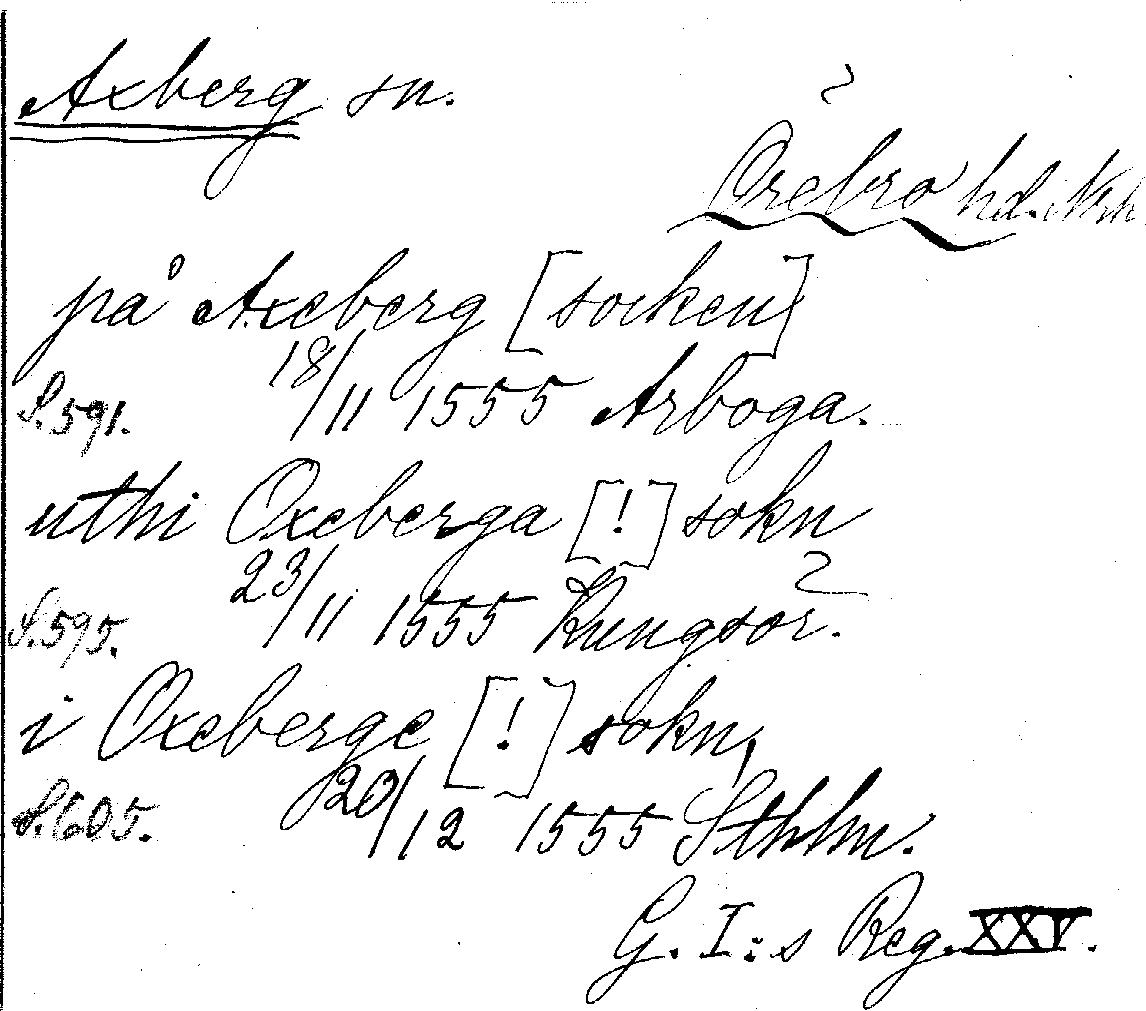 Axberg sn.
Örebro hd. Nrk
på Axeberg [socken]
S. 591. 18/11 1555 Arboga.
uthi Oxeberga [!] sokn
S. 595. 23/11 1555 Kungsör.
i Oxeberge [!] sokn,
S. 605. 20/12 1555 Sthlm.
G. I:s Reg. XXV.